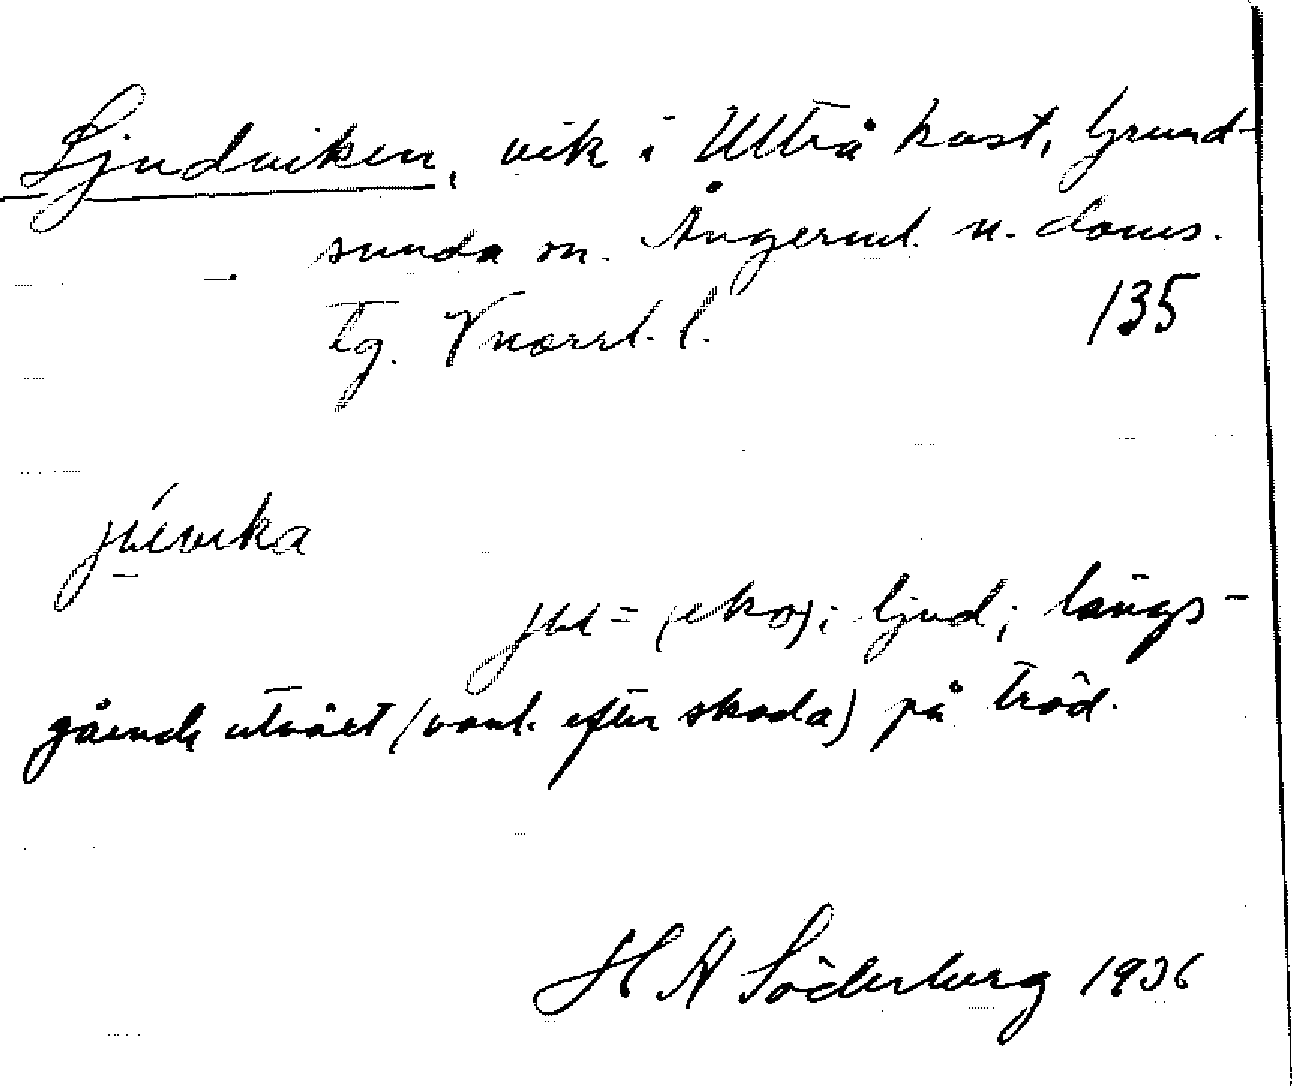 Ljudviken, vik i Ultrå kust, Grund-
sunda sn. Ångerml. n. doms.
tg. Vnorrl. l. 135
(eko); ljud; längs-
gående utväxt (vanl. efter skada) på träd.
H A Söderberg 1936